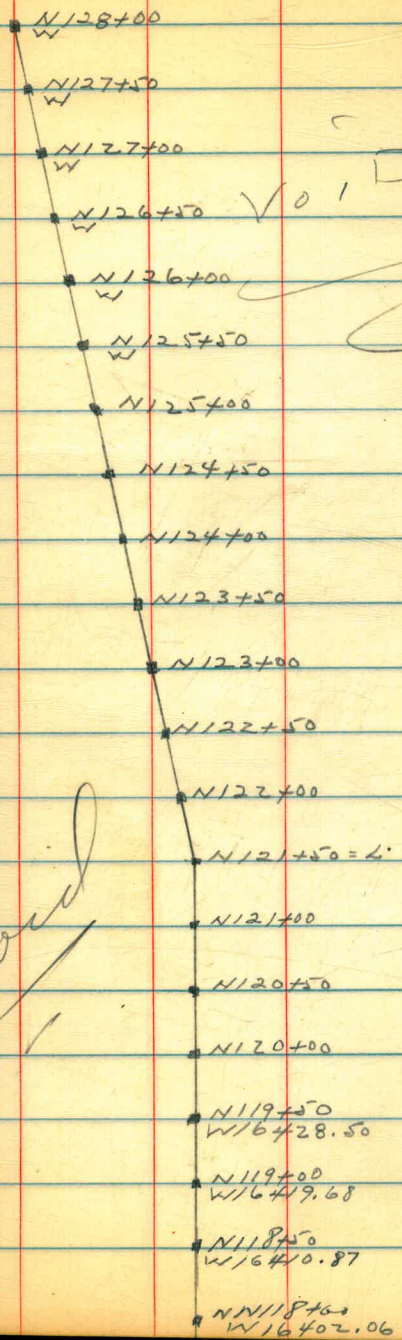 N128+00
W
N127+50
W
N127+00
W
N126+50
W
VOID
N126+00
W
N125+50
W
N125+00
N124+50
N124+00
N123+50
N123+00
N122+50
N122+00
N121+50 = L.
N121+00
N120+50
N120+00
N119+50
W16428.50
N119+00
W16419.68
N118+50
W16410.87
NN118+00
W16402.06